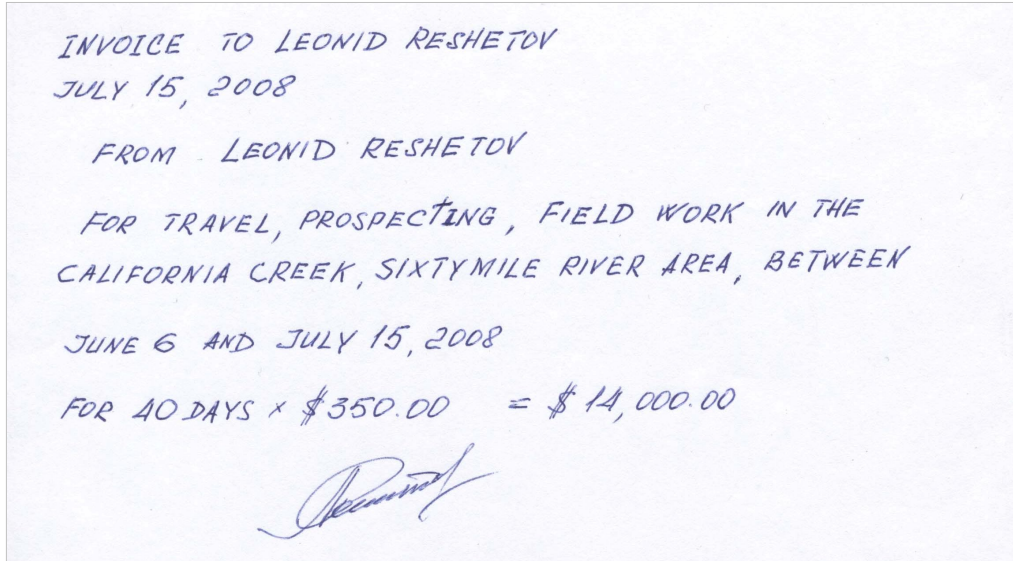 INVOICE TO LEONID RESHETOV
JULY 15, 2008
FROM LEONID RESHETOV
FOR TRAVEL, PROSPECTING, FIELD WORK IN THE
CALIFORNIA CREEK, SIXTYMILE RIVER AREA, BETWEEN
JUNE 6 AND JULY 15, 2008
FOR 40 DAYS × $350.00 = $14,000.00